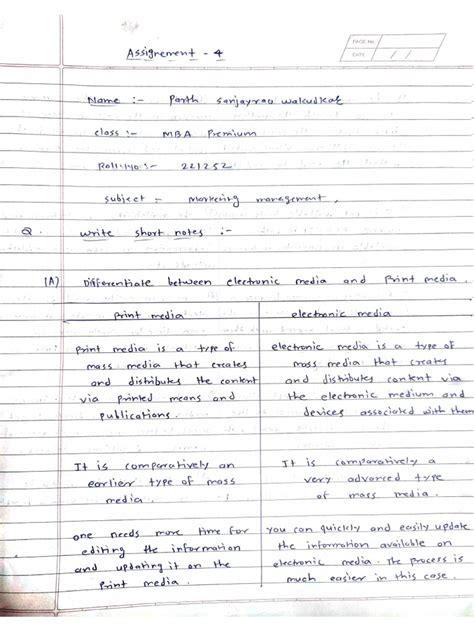 PAGE No.
DATE / /
Assignement - 4
Name :- Parth Sanjayrao Walcudkar
class :- MBA Premium
Roll.No :- 221252
subject :- Marketing management,
Q. write short notes :-
(A) Differentiate between electronic media and Print media.
Print media
electronic media
Print media is a type of
mass media that creates
and distributes the content
via printed means and
publications.
electronic media is a type of
mass media that creates
and distributes content via
the electronic medium and
devices associated with them
It is comparatively an
earlier type of mass
media.
It is comparatively a
very advanced type
of mass media.
one needs more time for
editing the information
and updating it on the
Print media.
you can quickly and easily update
the information available on
electronic media. The process is
much easier in this case.